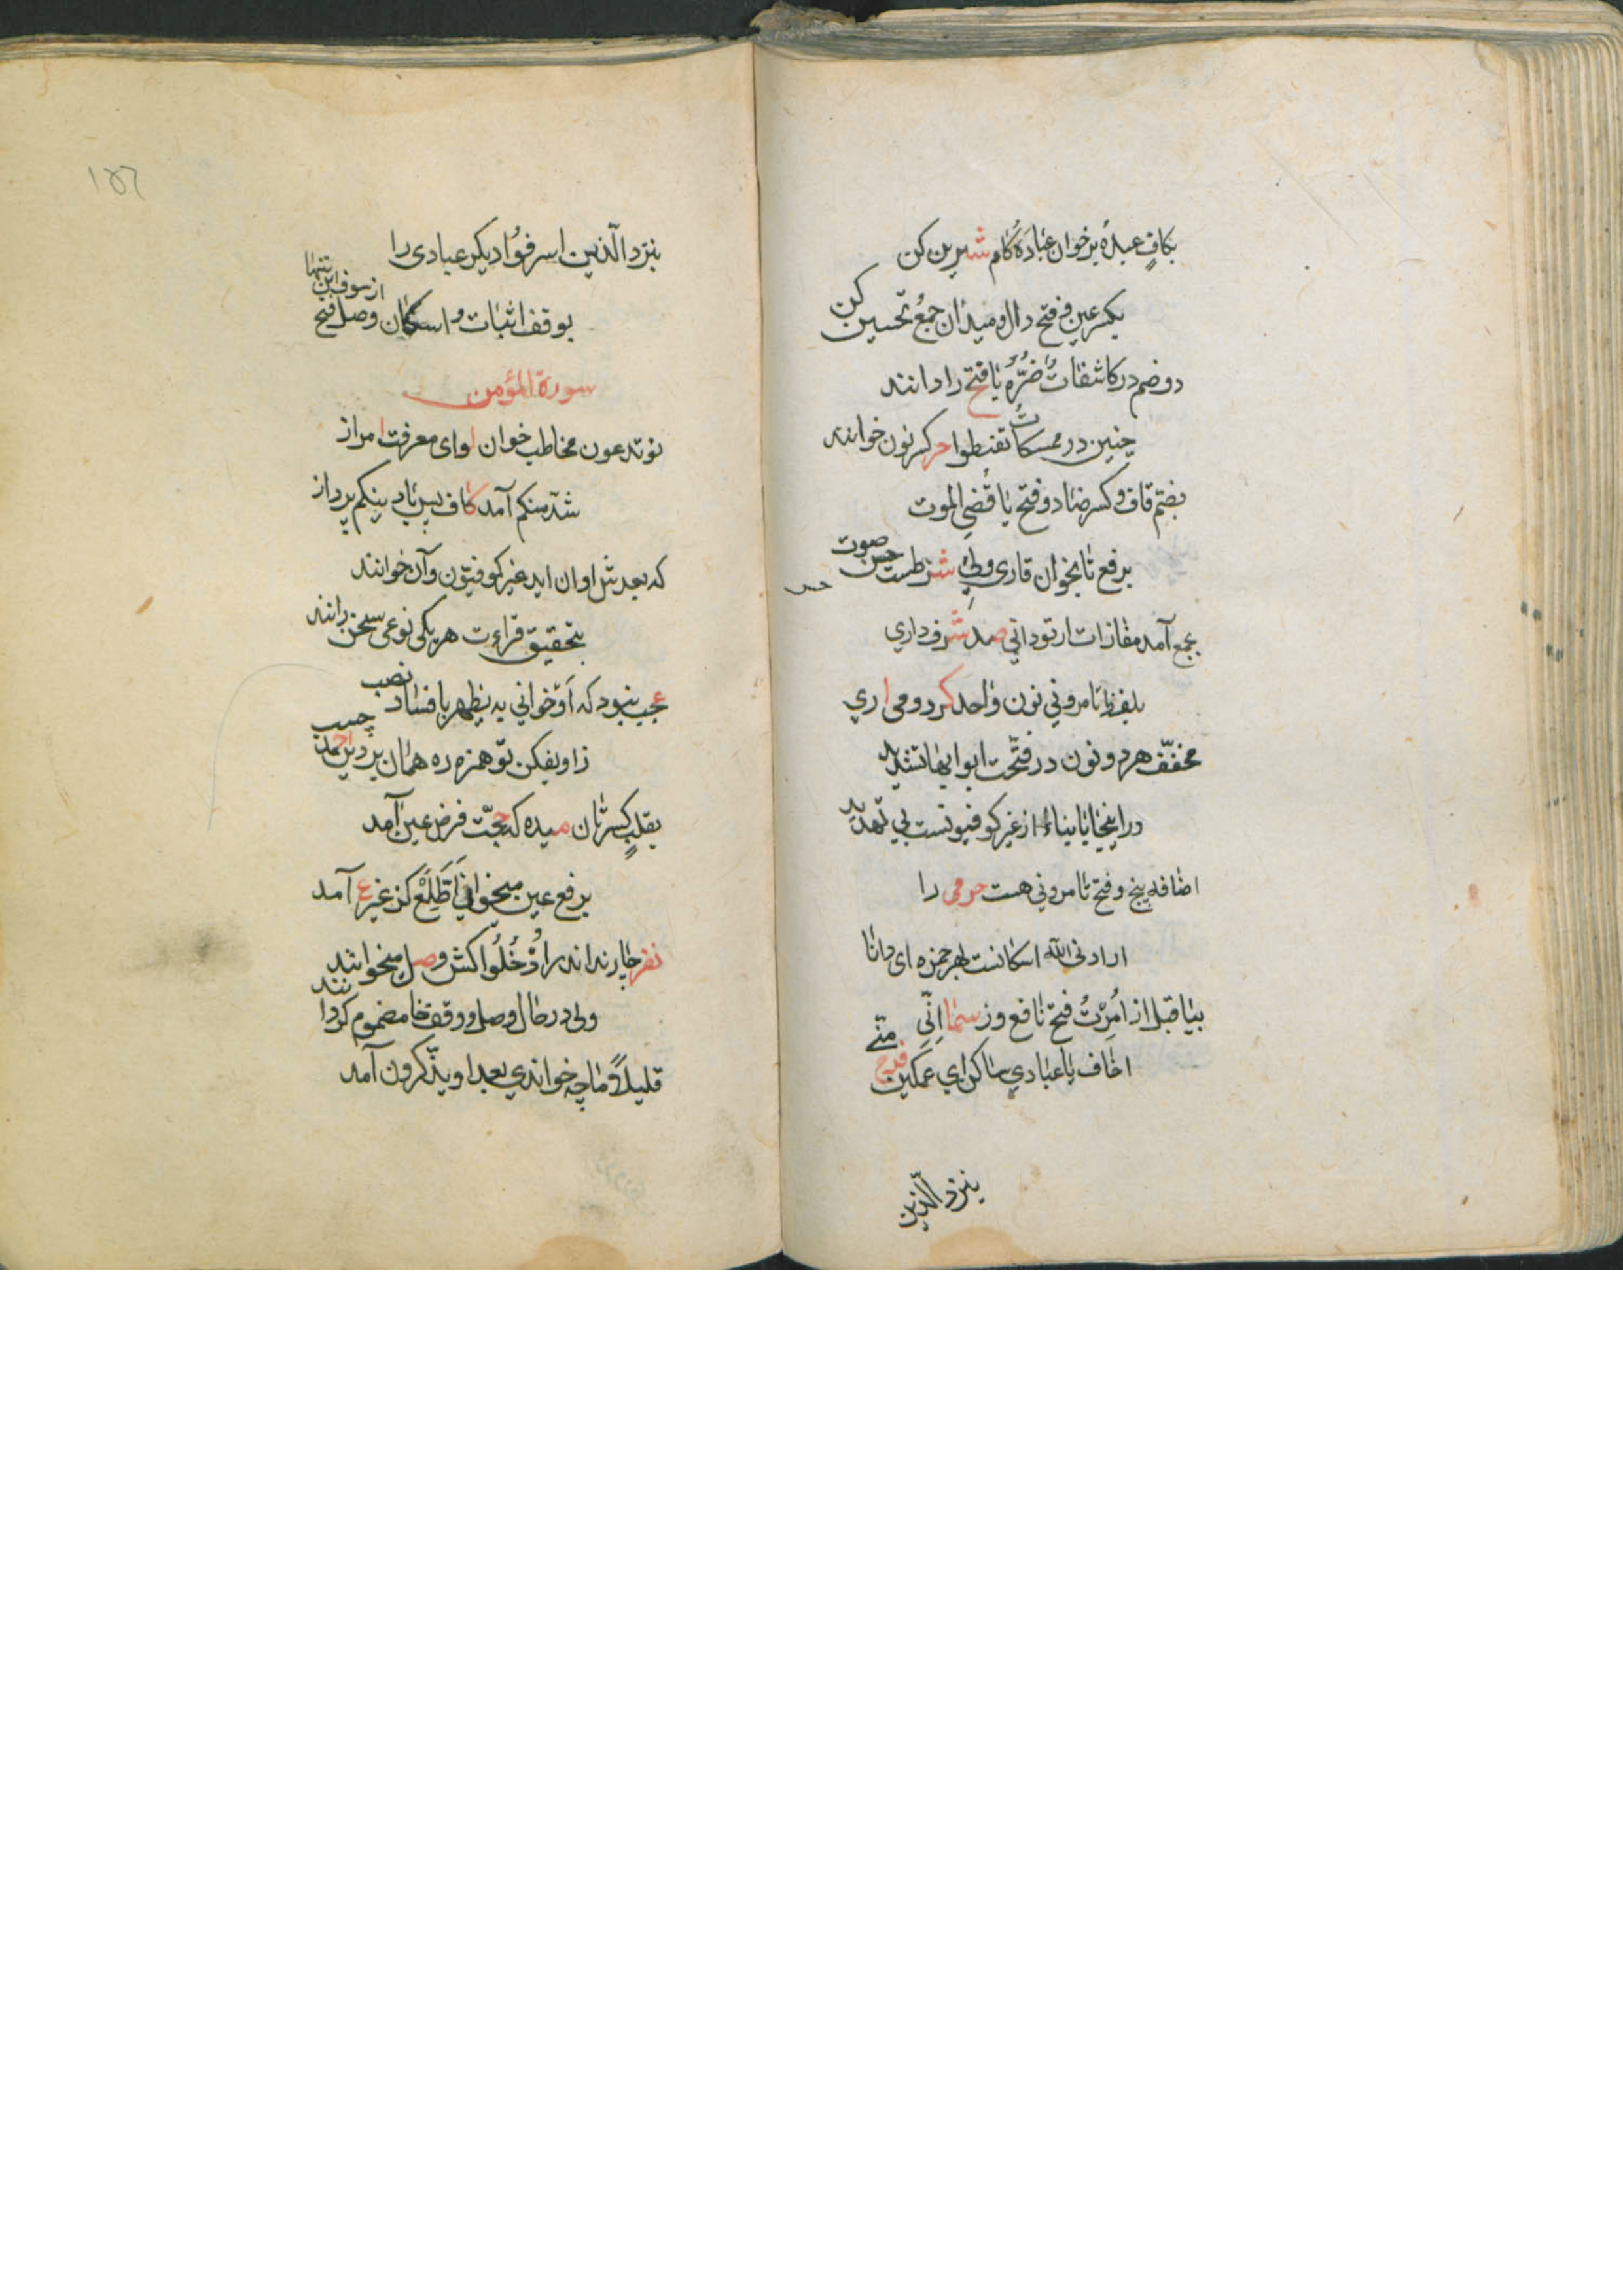 بکاف عبده بر خوان عباده کام شیرین کن
بکسر عین و فتح دال و میدان جمع تحسین کن
دو ضم در کاشفات ضره یا فتح را دانند
چنین در ممسکات تقنطوا حر کسر نون خوانند
بضم قاف و کسر ضاد و فتح یا قضی الموت
برفع تا بخوان قاری ولی شرطست حسن صوت
حسن
بجمع آمد مفازات ار تو دانی صد شرف داری
بلفظ تامرونی نون واحد کرد و می اری
مخفف هر دو نون در فتحت ابوابها تشدید
ور اینجا یا بناء از غیر کوفیونست بی تهدید
اضافه پنج و فتح تامرونی هست حرمی را
ارادنی الله اسکانست بهر حمزه ای دانا
بیا قبل از امرت فتح نافع وز سما انی
اخاف یا عبادی ساکن ای غمکین فرح متی
بنزد الذین
۱۵۶
بنزد الذین اسرفوا دیکر عبادی را
بوقف اثبات و اسکان وصل فتح از سوف این تنها
سورة المؤمن
نو تدعون مخاطب خوان لوای معرفت امراز
شد منکم آمد کاف پس باد ینکم پرداز
که بعدش او ان اید غیر کوفیون و آن خوانند
بتحقیق قراءت هر یکی نوعی سخن دانند
عجب نبود که او خوانی به یظهر با فساد نصب
ز او بفکن تو همزه ره همان بر دین احمد چسب
بقلب کسرتان میده که حجت فرض عین آمد
برفع عین میخوانی اطلع کز غیر ع آمد
نفر چارند اندر ادخلوا کش وصل میخوانند
ولی در حال وصل و وقف خا مضموم کردانند
قلیلا و ما چه خواندی بعد او یذکرون آمد